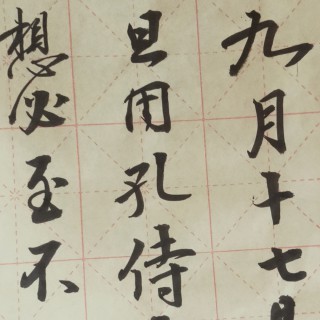 九月十七日
且因孔侍
想必至不